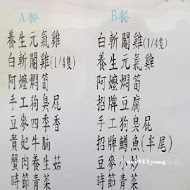 A餐
養生元氣雞
白斬閹雞(1/4隻)
阿嬤燜筍
手工狗臭屁
豆參四季季
貴妃牛腩
蟹肉養生菇
時節青菜
B餐
白斬閹雞(1/4隻)
養生元氣雞
阿嬤燜筍
招牌豆腐
手工狗臭屁
招牌鱘魚(半尾)
豆參小炒
時節青菜